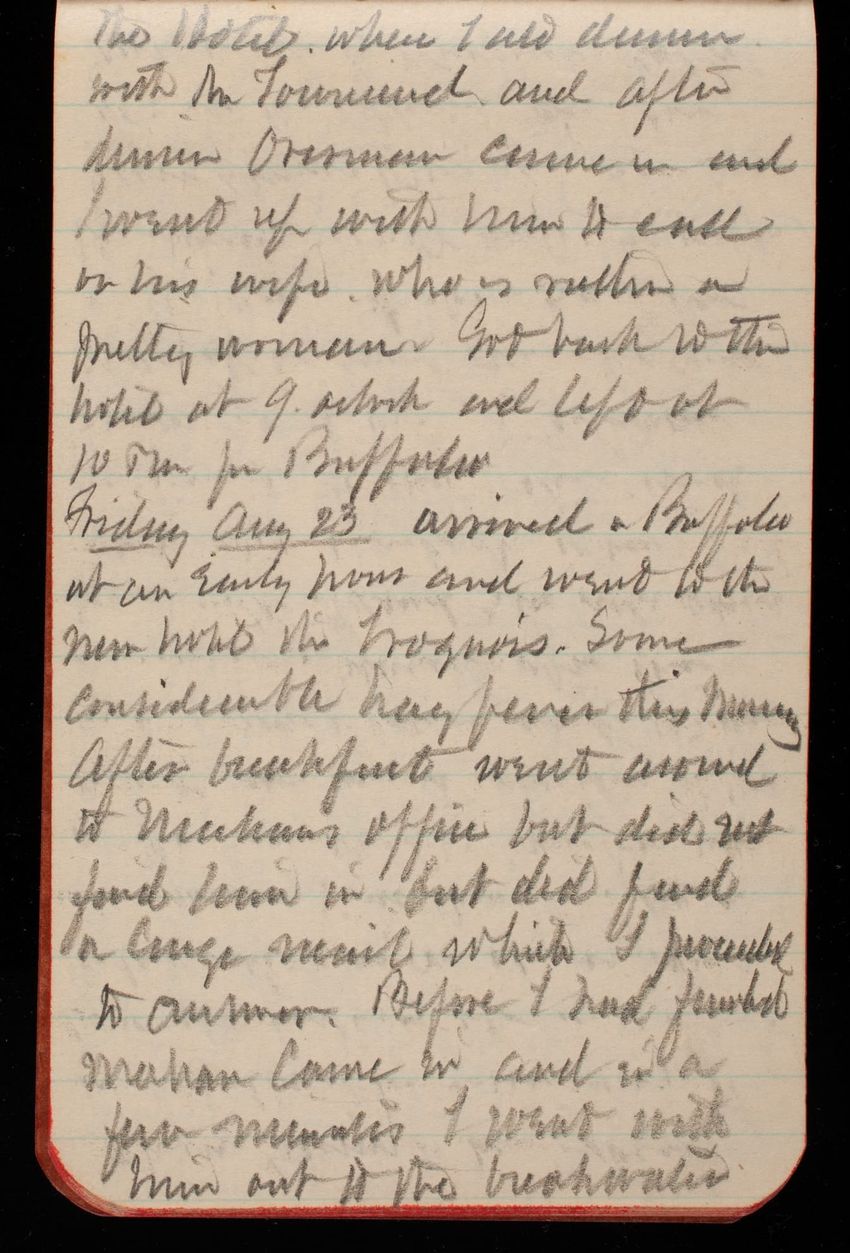 the Hotel. where I ate dinner
with Mr Townsend and after
dinner Overman came in and
I went up with him to call
on his wife. who is rather a
pretty woman. Got back to the
hotel at 9. oclock and left at
10 Pm for Buffalo
Friday Aug 23 arrived a Buffalo
at an Early hour and went to the
new hotel the Iroquois. Some
considerable hay fever this morning
After breakfast went around
to Mahans office but did not
find him in but did find
a large mail which I proceeded
to answer. Before I had finished
Mahan Came in and in a
few minutes I went with
him out to the breakwater